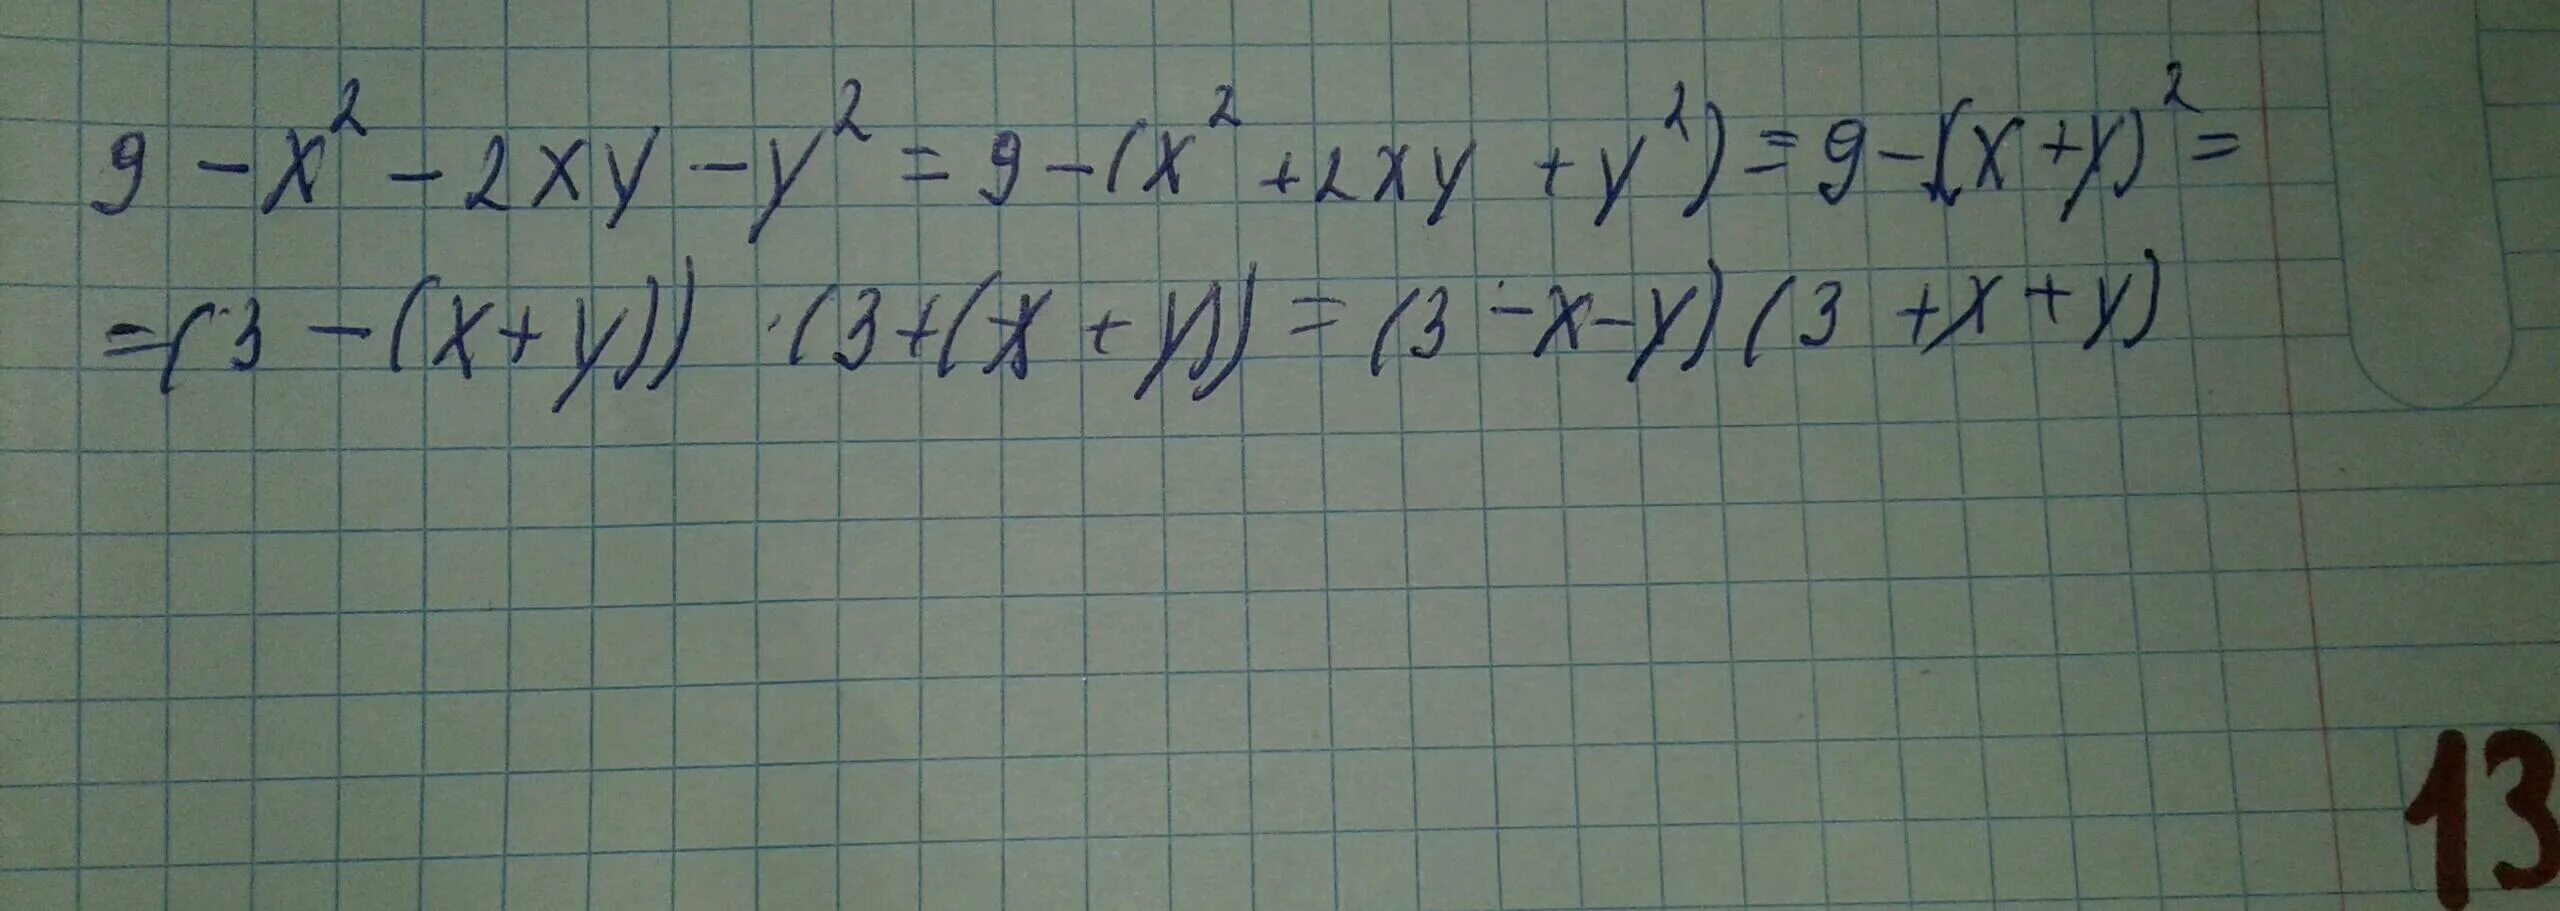 9 - x² - 2xy - y² = 9 - (x² + 2xy + y²) = 9 - (x + y)² =
= (3 - (x + y)) · (3 + (x + y)) = (3 - x - y) (3 + x + y)
13